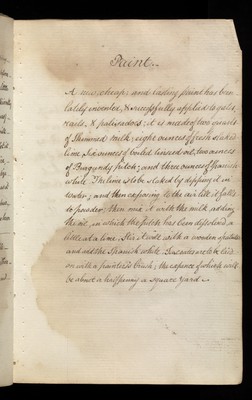 Paint.
A new, cheap, and lasting paint has been
lately invented, & successfully applied to gates,
carts, & palisadoes: it is made of two quarts
of skimmed milk; eight ounces of fresh slaked
lime six ounces of boiled linseed oil, two ounces
of Burgundy pitch; and three ounces of spanish
white. The lime is to be slaked by dipping it in
water; and then exposing to the air till it falls
to powder; then mix it with the milk adding
the oil, in which the pitch has been dissolved a
little at a time. Stir it well with a wooden spatula
and add the Spanish white. Two coats are to be laid
on with a painter's brush; the expence of which will
be about a halfpenny a square yard.